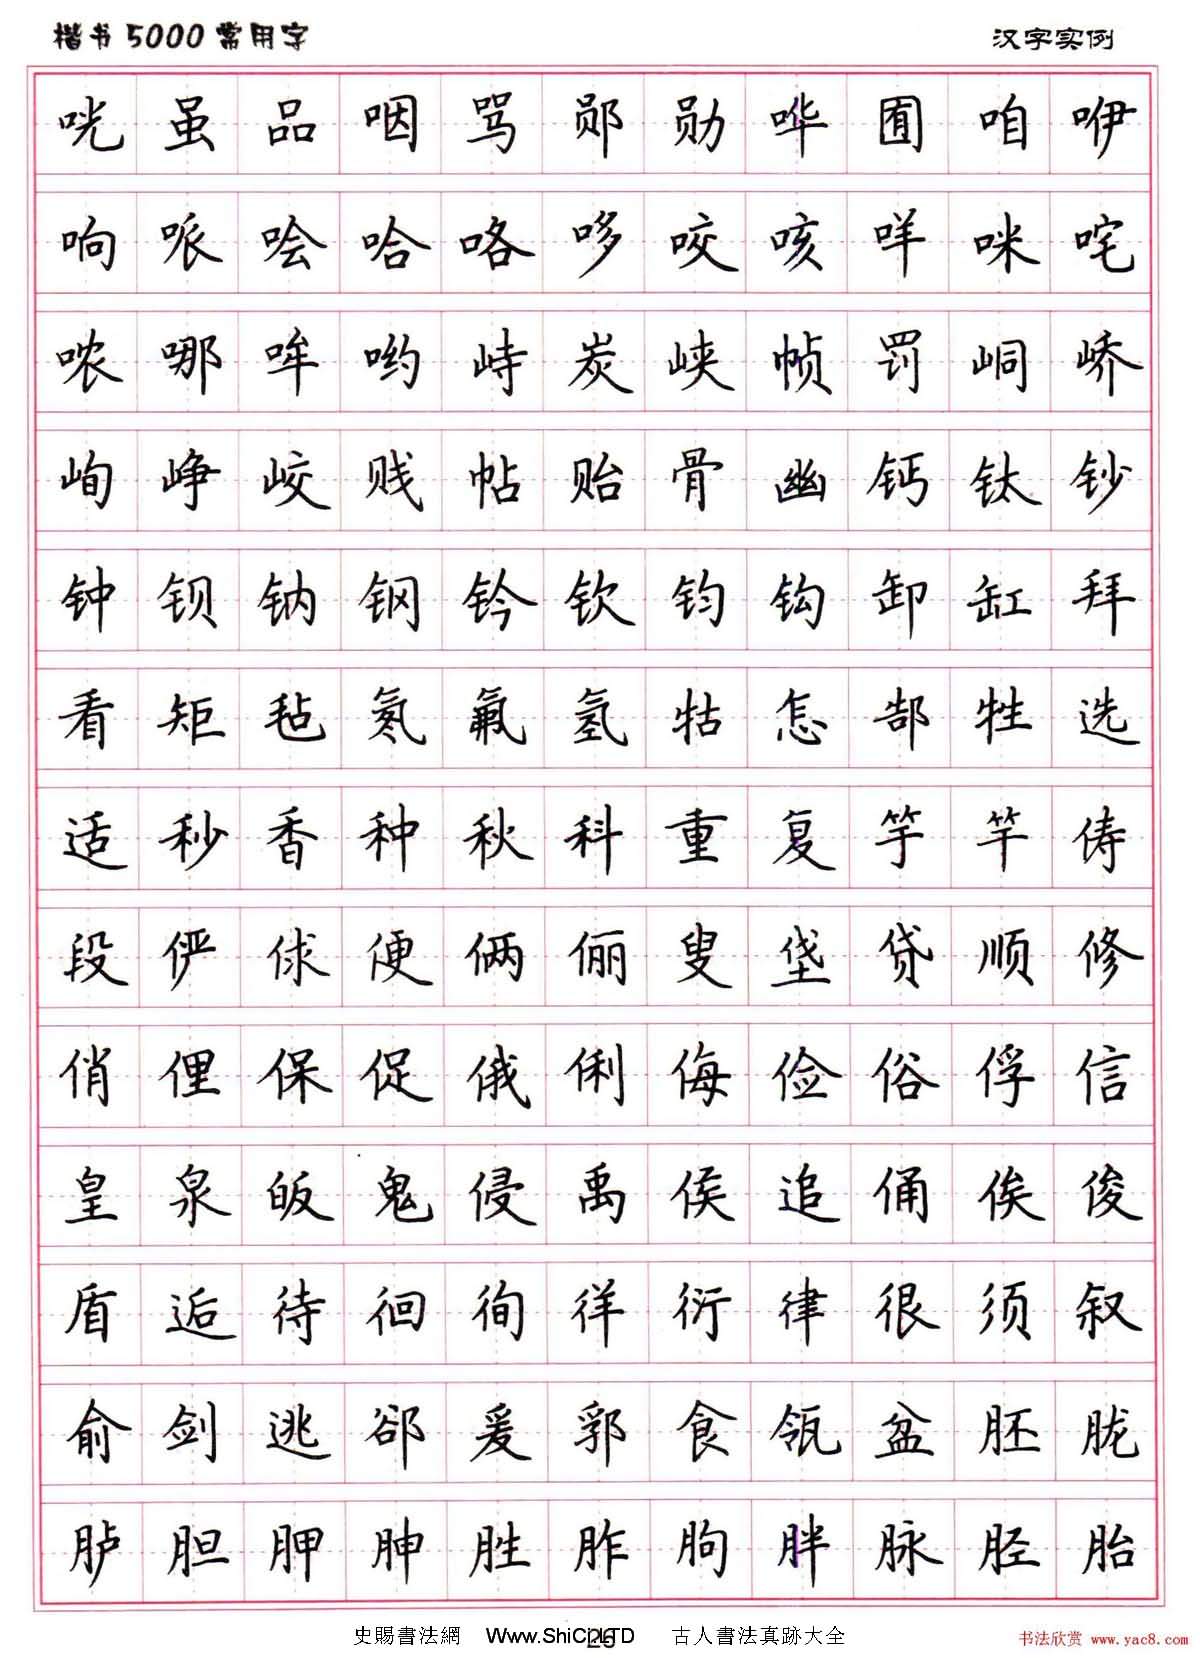 楷书5000常用字 汉字实例
咣 虽 品 咽 骂 郧 勋 哗 囿 咱 咿
响 哌 哙 哈 咯 哆 咬 咳 咩 咪 咤
哝 哪 哞 哟 峙 炭 峡 帧 罚 峒 峤
峋 峥 峧 贱 帖 贻 骨 幽 钙 钛 钞
钟 钡 钠 钢 钤 钦 钧 钩 卸 缸 拜
看 矩 毡 氡 氟 氢 牯 怎 郜 牲 选
适 秒 香 种 秋 科 重 复 竽 竿 俦
段 俨 俅 便 俩 俪 叟 垡 贷 顺 修
俏 俚 保 促 俄 俐 侮 俭 俗 俘 信
皇 泉 皈 鬼 侵 禹 侯 追 俑 俟 俊
盾 逅 待 徊 徇 徉 衍 律 很 须 叙
俞 剑 逃 郤 爰 郛 食 瓴 盆 胚 胧
胪 胆 胛 胂 胜 胙 朐 胖 脉 胫 胎
史賜書法網 Www.ShiCi.LTD 古人書法真跡大全
25
书法欣赏 www.yac8.com